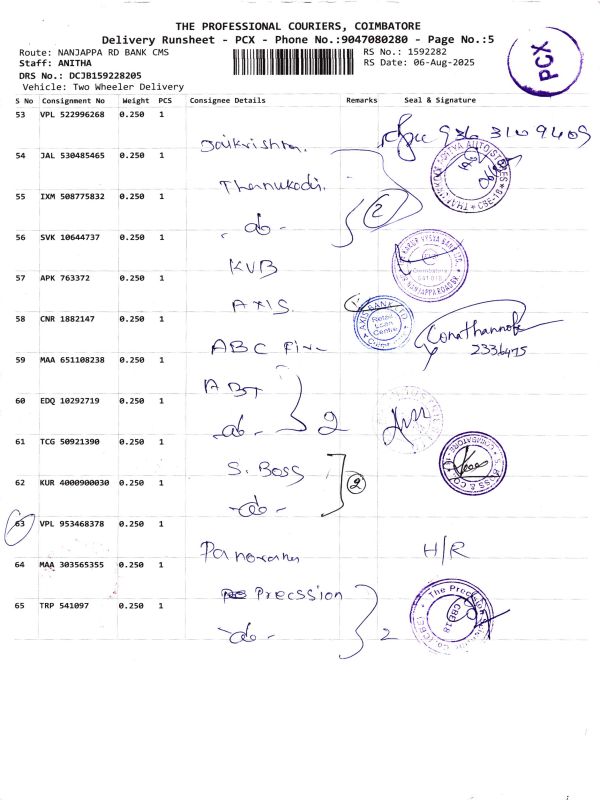 THE PROFESSIONAL COURIERS, COIMBATORE
Delivery Runsheet - PCX - Phone No.:9047080280 - Page No.:5
PCX
Route: NANJAPPA RD BANK CMS
RS No.: 1592282
Staff: ANITHA
RS Date: 06-Aug-2025
DRS No.: DCJB159228205
Vehicle: Two Wheeler Delivery
S No Consignment No Weight PCS Consignee Details Remarks Seal & Signature
53 VPL 522996268 0.250 1
Jaikrishna. 936 3109409
54 JAL 530485465 0.250 1
Thanukodi.
55 IXM 508775832 0.250 1
- do - 2
56 SVK 10644737 0.250 1
KVB
57 APK 763372 0.250 1
AXIS. AXIS BANK LTD Retail Loan Centre
58 CNR 1882147 0.250 1
ABC 2336475
59 MAA 651108238 0.250 1
ABT
60 EDQ 10292719 0.250 1
- do - 2
61 TCG 50921390 0.250 1
S. Boss S. BOSS & CO COIMBATORE
62 KUR 4000900030 0.250 1
- do - 2
63 VPL 953468378 0.250 1
Panorama H/R
64 MAA 303565355 0.250 1
Precssion
65 TRP 541097 0.250 1
- do - 2 The Precision CBE18